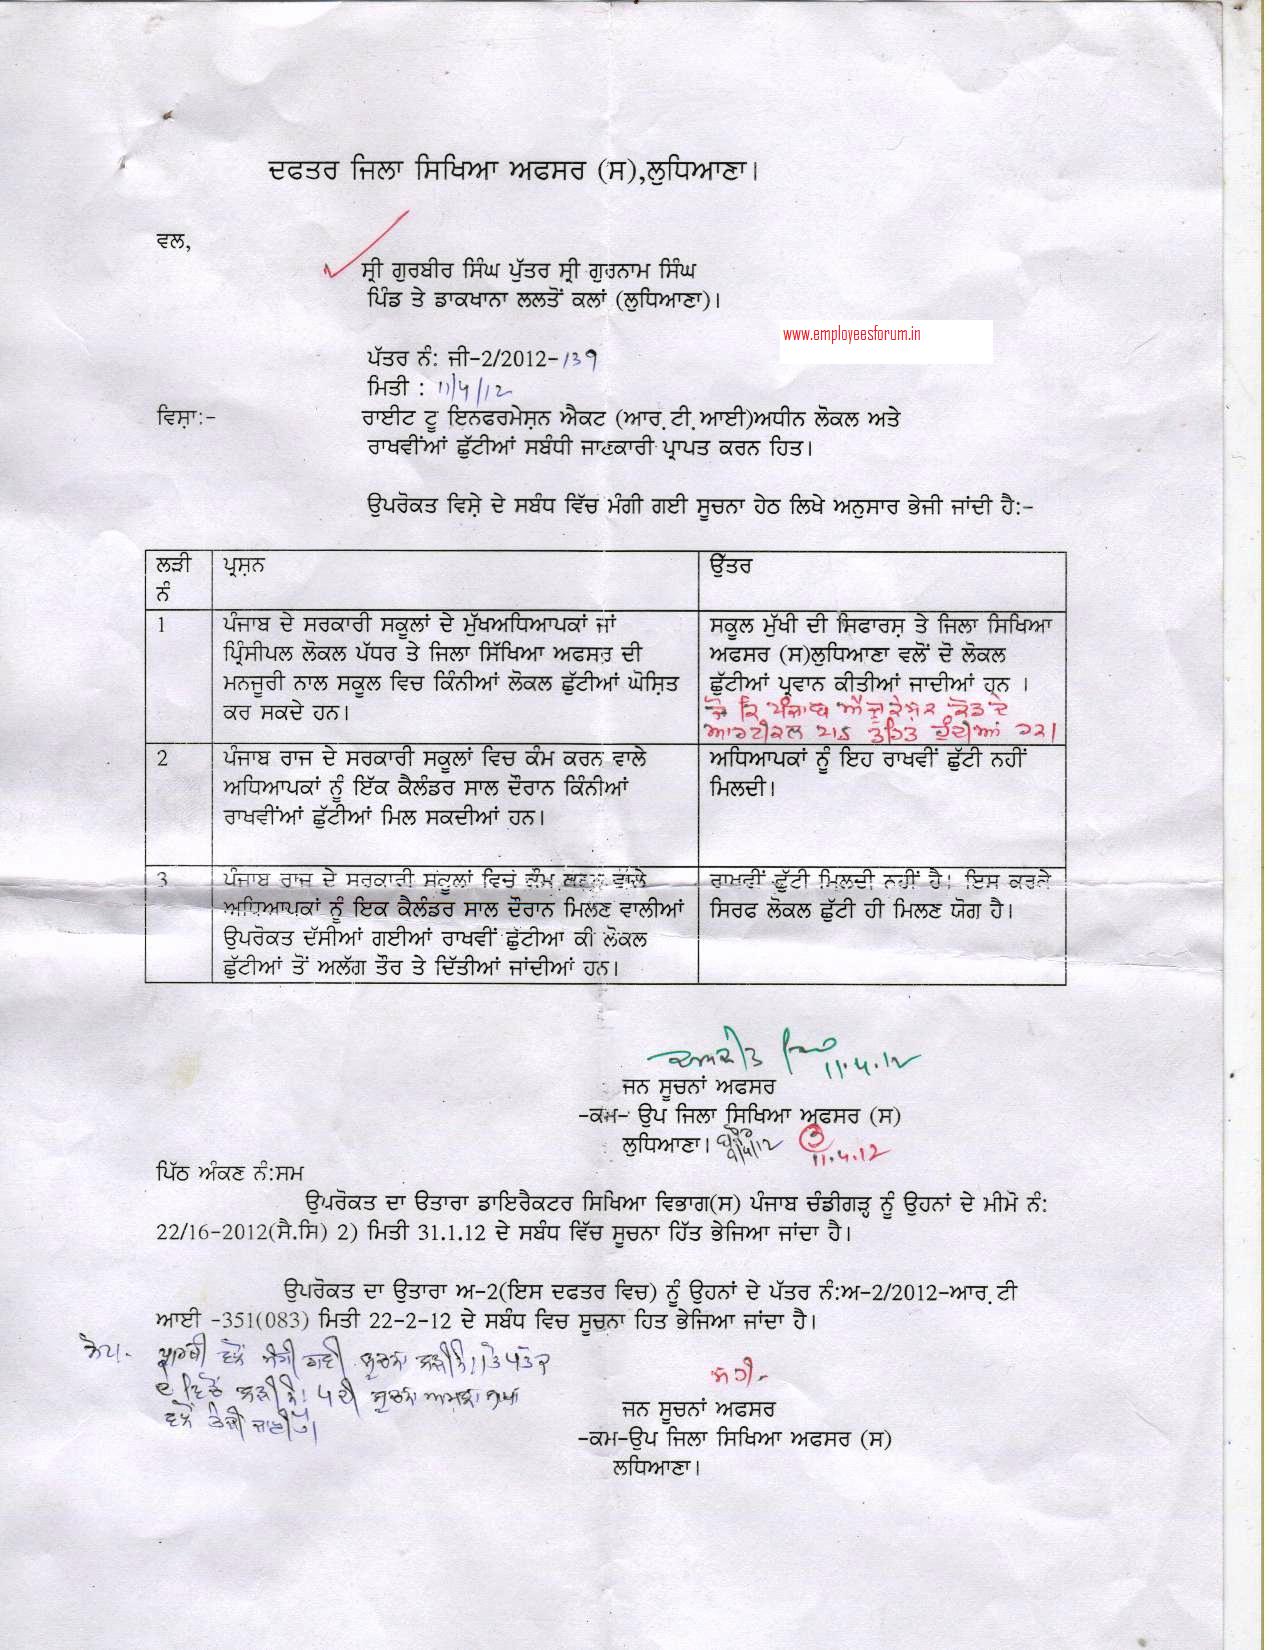 ਦਫਤਰ ਜਿਲਾ ਸਿਖਿਆ ਅਫਸਰ (ਸ),ਲੁਧਿਆਣਾ।
ਵਲ,
ਸ੍ਰੀ ਗੁਰਬੀਰ ਸਿੰਘ ਪੁੱਤਰ ਸ੍ਰੀ ਗੁਰਨਾਮ ਸਿੰਘ
ਪਿੰਡ ਤੇ ਡਾਕਖਾਨਾ ਲਲਤੋਂ ਕਲਾਂ (ਲੁਧਿਆਣਾ)।
www.employeesforum.in
ਪੱਤਰ ਨੰ: ਜੀ-2/2012-139
ਮਿਤੀ : 11/4/12
ਵਿਸ਼ਾ:-
ਰਾਈਟ ਟੂ ਇਨਫਰਮੇਸ਼ਨ ਐਕਟ (ਆਰ.ਟੀ.ਆਈ)ਅਧੀਨ ਲੋਕਲ ਅਤੇ
ਰਾਖਵੀਂਆਂ ਛੁੱਟੀਆਂ ਸਬੰਧੀ ਜਾਣਕਾਰੀ ਪ੍ਰਾਪਤ ਕਰਨ ਹਿਤ।
ਉਪਰੋਕਤ ਵਿਸ਼ੇ ਦੇ ਸਬੰਧ ਵਿੱਚ ਮੰਗੀ ਗਈ ਸੂਚਨਾ ਹੇਠ ਲਿਖੇ ਅਨੁਸਾਰ ਭੇਜੀ ਜਾਂਦੀ ਹੈ:-
ਲੜੀ
ਨੰ
ਪ੍ਰਸ਼ਨ
ਉੱਤਰ
1
ਪੰਜਾਬ ਦੇ ਸਰਕਾਰੀ ਸਕੂਲਾਂ ਦੇ ਮੁੱਖਅਧਿਆਪਕਾਂ ਜਾਂ
ਪ੍ਰਿੰਸੀਪਲ ਲੋਕਲ ਪੱਧਰ ਤੇ ਜਿਲਾ ਸਿੱਖਿਆ ਅਫਸਰ ਦੀ
ਮਨਜੂਰੀ ਨਾਲ ਸਕੂਲ ਵਿਚ ਕਿੰਨੀਆਂ ਲੋਕਲ ਛੁੱਟੀਆਂ ਘੋਸ਼ਿਤ
ਕਰ ਸਕਦੇ ਹਨ।
ਸਕੂਲ ਮੁੱਖੀ ਦੀ ਸਿਫਾਰਸ਼ ਤੇ ਜਿਲਾ ਸਿਖਿਆ
ਅਫਸਰ (ਸ)ਲੁਧਿਆਣਾ ਵਲੋਂ ਦੋ ਲੋਕਲ
ਛੁੱਟੀਆਂ ਪ੍ਰਵਾਨ ਕੀਤੀਆਂ ਜਾਦੀਆਂ ਹਨ ।
ਜੋ ਕਿ ਪੰਜਾਬ ਐਜੂਕੇਸ਼ਨ ਕੋਡ ਦੇ
ਆਰਟੀਕਲ ਤਹਿਤ ਹੁੰਦੀਆਂ ਹਨ।
2
ਪੰਜਾਬ ਰਾਜ ਦੇ ਸਰਕਾਰੀ ਸਕੂਲਾਂ ਵਿਚ ਕੰਮ ਕਰਨ ਵਾਲੇ
ਅਧਿਆਪਕਾਂ ਨੂੰ ਇੱਕ ਕੈਲੰਡਰ ਸਾਲ ਦੌਰਾਨ ਕਿੰਨੀਆਂ
ਰਾਖਵੀਂਆਂ ਛੁੱਟੀਆਂ ਮਿਲ ਸਕਦੀਆਂ ਹਨ।
ਅਧਿਆਪਕਾਂ ਨੂੰ ਇਹ ਰਾਖਵੀਂ ਛੁੱਟੀ ਨਹੀਂ
ਮਿਲਦੀ।
3
ਪੰਜਾਬ ਰਾਜ ਦੇ ਸਰਕਾਰੀ ਸਕੂਲਾਂ ਵਿਚ ਕੰਮ ਕਰਨ ਵਾਲੇ
ਅਧਿਆਪਕਾਂ ਨੂੰ ਇਕ ਕੈਲੰਡਰ ਸਾਲ ਦੌਰਾਨ ਮਿਲਣ ਵਾਲੀਆਂ
ਉਪਰੋਕਤ ਦੱਸੀਆਂ ਗਈਆਂ ਰਾਖਵੀਂ ਛੁੱਟੀਆ ਕੀ ਲੋਕਲ
ਛੁੱਟੀਆਂ ਤੋਂ ਅਲੱਗ ਤੌਰ ਤੇ ਦਿੱਤੀਆਂ ਜਾਂਦੀਆਂ ਹਨ।
ਰਾਖਵੀਂ ਛੁੱਟੀ ਮਿਲਦੀ ਨਹੀਂ ਹੈ। ਇਸ ਕਰਕੇ
ਸਿਰਫ ਲੋਕਲ ਛੁੱਟੀ ਹੀ ਮਿਲਣ ਯੋਗ ਹੈ।
11.4.12
ਜਨ ਸੂਚਨਾਂ ਅਫਸਰ
-ਕਮ- ਉਪ ਜਿਲਾ ਸਿਖਿਆ ਅਫਸਰ (ਸ)
ਲੁਧਿਆਣਾ। 11.4.12
ਪਿੱਠ ਅੰਕਣ ਨੰ:ਸਮ
ਉਪਰੋਕਤ ਦਾ ਉਤਾਰਾ ਡਾਇਰੈਕਟਰ ਸਿਖਿਆ ਵਿਭਾਗ(ਸ) ਪੰਜਾਬ ਚੰਡੀਗੜ੍ਹ ਨੂੰ ਉਹਨਾਂ ਦੇ ਮੀਮੋ ਨੰ:
22/16-2012(ਸੈ.ਸਿ) 2) ਮਿਤੀ 31.1.12 ਦੇ ਸਬੰਧ ਵਿੱਚ ਸੂਚਨਾ ਹਿੱਤ ਭੇਜਿਆ ਜਾਂਦਾ ਹੈ।
ਉਪਰੋਕਤ ਦਾ ਉਤਾਰਾ ਅ-2(ਇਸ ਦਫਤਰ ਵਿਚ) ਨੂੰ ਉਹਨਾਂ ਦੇ ਪੱਤਰ ਨੰ:ਅ-2/2012-ਆਰ.ਟੀ
ਆਈ -351(083) ਮਿਤੀ 22-2-12 ਦੇ ਸਬੰਧ ਵਿਚ ਸੂਚਨਾ ਹਿਤ ਭੇਜਿਆ ਜਾਂਦਾ ਹੈ।
ਵਲੋਂ ਮੰਗੀ ਗਈ ਸੂਚਨਾ
ਸਹੀ-
ਜਨ ਸੂਚਨਾਂ ਅਫਸਰ
-ਕਮ-ਉਪ ਜਿਲਾ ਸਿਖਿਆ ਅਫਸਰ (ਸ)
ਲਧਿਆਣਾ।